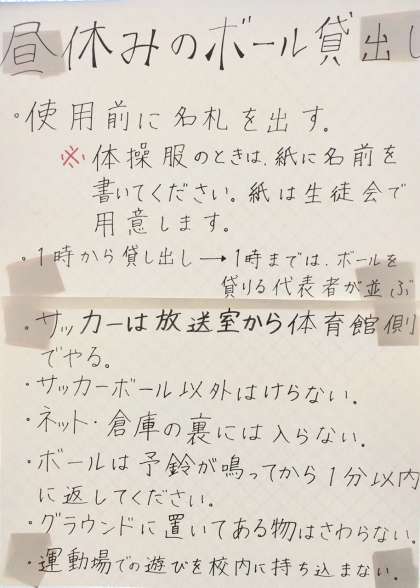 昼休みのボール貸出し
。使用前に名札を出す。
※体操服のときは、紙に名前を
書いてください。紙は生徒会で
用意します。
。1時から貸し出し→1時までは、ボールを
貸りる代表者が並ぶ
・サッカーは放送室から体育館側
でやる。
・サッカーボール以外はけらない。
・ネット・倉庫の裏には入らない。
・ボールは予鈴が鳴ってから1分以内
に返してください。
・グラウンドに置いてある物はさわらない。
・運動場での遊びを校内に持ち込まない。